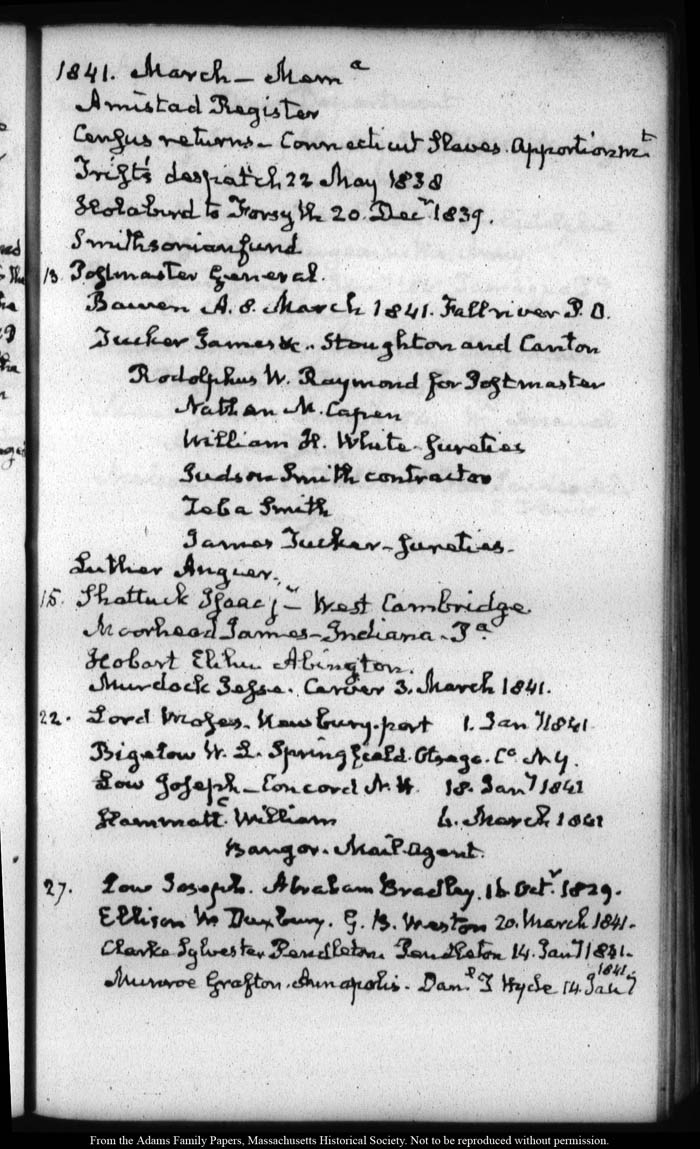 1841. March – Mem.a
Amistad Register
Census returns – Connecticut Slaves. Apportionmt
Trist's despatch 22 May 1838
Holabird to Forsyth 20. Decr 1839.
Smithsonian fund
13. Postmaster General.
Bowen A. S. March 1841. Fallriver P. O.
Tucker James &c. Stoughton and Canton
Rodolphus W. Raymond for Postmaster
Nathan M. Capen
William H. White – sureties
Judson Smith contractor
Zeba Smith
James Tucker – sureties –
Luther Angier.
15. Shattuck Isaac jr – West Cambridge
Moorhead James – Indiana – Pa
Hobart Elihu Abington.
Murdock Jesse. Carver 3. March 1841.
22. Lord Moses. Newbury-port 1. Jany 1841
Bigelow W. L. Springfield. Otsego. Co. N.Y.
Low Joseph – Concord N. H. 18. Jany 1841
Hammatt William 6. March 1841
Bangor. Mail Agent.
27. Low Joseph. Abraham Bradley. 16. Octr. 1829.
Ellison Wm Duxbury. G. B. Weston 20. March 1841.
Clarke Sylvester Pendleton. Pendleton 14. Jany 1831.
Munroe Grafton. Annapolis. Danl T Hyde 14. Jany 1841.
From the Adams Family Papers, Massachusetts Historical Society. Not to be reproduced without permission.